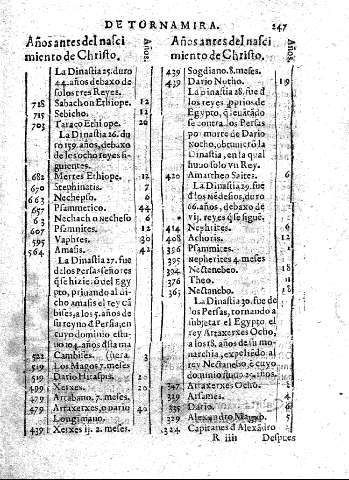 DE TORNAMIRA. 247
Años antes del nasci
miento de Christo.
Años.
La Dinastia 25. duro
44. años, debaxo de
solos tres Reyes.
718 Sabachon Ethiope. 12
715 Sebicho. 12
703 Taraco Ethiope. 20
La Dinastia 26. du
ro 159. años, debaxo
de los ocho reyes si-
guientes.
682 Merres Ethiope. 12
670 Stephinatis. 7
663 Nechepso. 6
657 Psammetico. 44
Nechach o Nechepso 6
607 Psamnites. 12
595 Vaphres. 30
564 Amasis. 42
La Dinastia 27. fue
de los Persas señores
de Egypto, priuando al di-
cho Amasis el rey Cã
bises, a los 5. años de
su reyno de Persia, en
cuyo dominio estu
uo 104. años
522 Cambises. 3
519 Los Magos 7. meses
519 Dario Hitaspis. 20
499 Xerxes. 20
479 Artabano. 7. meses.
479 Artaxerxes, o dario 40
Longimano.
439 Xerxes ij. 2. meses.
Años antes del nasci
miento de Christo.
Años.
439 Sogdiano. 8. meses.
439 Dario Notho. 19
La Dinastia 28. fue de
los reyes proprios de
Egypto,
se contra los Persas
por morte de Dario
Notho, obtuuierõ la
Dinastia, en la qual
huuo solo vn Rey.
420 Amartheo Saites. 6
La Dinastia 29. fue
de los Medesios, duro
años, debaxo de
vij. reyes que se siguẽ.
414 Nepherites. 6
408 Achoris. 12
396 Psammites.
395 nepherites 4. meses
394 Nectenebeo. 18
376 Theo.
365 Nectanebo. 18
La Dinastia 30. fue de
los Persas, tornando a
subjetar el Egypto el
rey Artaxerxes Ocho,
a los 18. años de su mo
narchia, expeliendo al
rey Nectanebo, el cuyo
dominio
347 Artaxerxes Ocho.
329 Arsames. 4
335 Dario. 6
329 Alexandro Magno. 5
324 Capitanes d Alexãdro
R iiij Despues